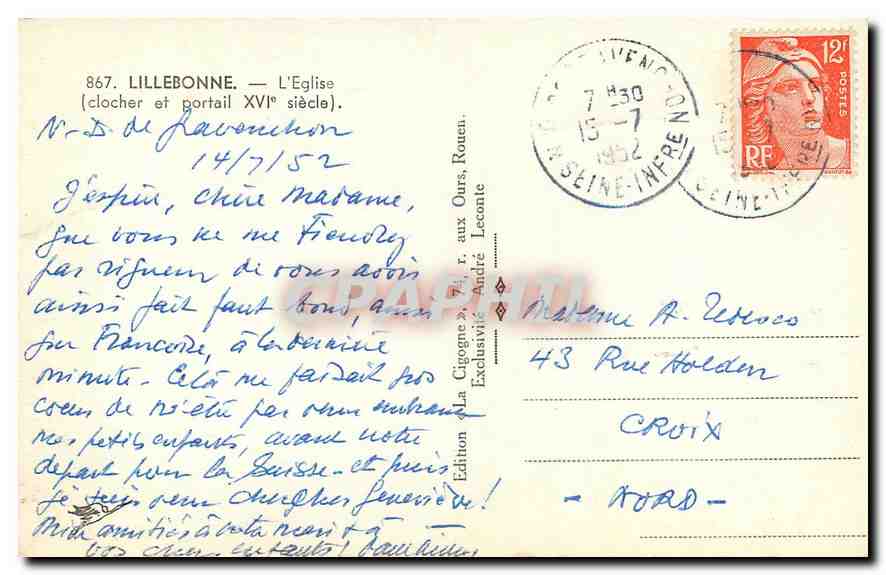 867. LILLEBONNE. — L'Eglise
(clocher et portail XVIe siècle).
N.-D. de Gravenchon
14/7/52
J'espère, chère Madame,
que vous ne me tiendrez
pas rigueur de vous avoir
ainsi fait faux bond, ainsi
que Françoise, à la dernière
minute - Celà me faisait gros
coeur de n'être pas venu embrasser
mes petits enfants, avant notre
départ pour la Suisse - et puis
je suis venu chercher Geneviève!
Mes amitiés à votre mari & à
vos chers enfants!
Edition « La Cigogne », 74, r. aux Ours, Rouen.
Exclusivité André Leconte
7H30
15-7
1952
SEINE-INFRE
12F
POSTES
RF
15
SEINE-INFRE
CPAPHIL
Madame A. Tedesco
43 Rue Holden
CROIX
- NORD -